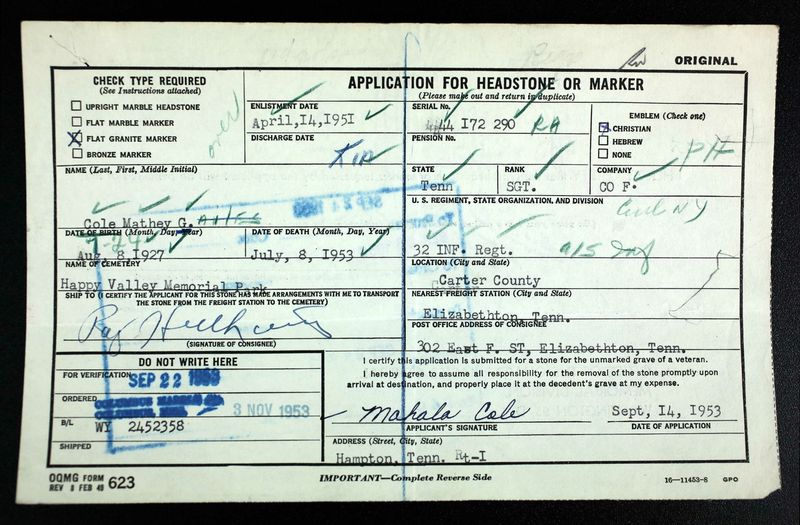 ORIGINAL
CHECK TYPE REQUIRED
(See Instructions attached)
UPRIGHT MARBLE HEADSTONE
FLAT MARBLE MARKER
X FLAT GRANITE MARKER
BRONZE MARKER
over
APPLICATION FOR HEADSTONE OR MARKER
(Please make out and return in duplicate)
ENLISTMENT DATE
April,14,1951
DISCHARGE DATE
KIA
SERIAL No.
44 172 290 RA
PENSION No.
EMBLEM (Check one)
CHRISTIAN
HEBREW
NONE
PH
STATE
Tenn
RANK
SGT.
COMPANY
CO F.
NAME (Last, First, Middle Initial)
Cole Mathey G.
U. S. REGIMENT, STATE ORGANIZATION, AND DIVISION
32 INF. Regt.
DATE OF BIRTH (Month, Day, Year)
Aug. 8 1927
DATE OF DEATH (Month, Day, Year)
July, 8, 1953
NAME OF CEMETERY
Happy Valley Memorial Park
LOCATION (City and State)
Carter County
SHIP TO (I CERTIFY THE APPLICANT FOR THIS STONE HAS MADE ARRANGEMENTS WITH ME TO TRANSPORT
THE STONE FROM THE FREIGHT STATION TO THE CEMETERY)
NEAREST FREIGHT STATION (City and State)
Elizabethton, Tenn.
(SIGNATURE OF CONSIGNEE)
POST OFFICE ADDRESS OF CONSIGNEE
302 East F. ST, Elizabethton, Tenn.
DO NOT WRITE HERE
FOR VERIFICATION
SEP 22 1953
ORDERED
COLUMBUS MARBLE
COLUMBUS, MISS.
3 NOV 1953
B/L
WY 2452358
SHIPPED
I certify this application is submitted for a stone for the unmarked grave of a veteran.
I hereby agree to assume all responsibility for the removal of the stone promptly upon
arrival at destination, and properly place it at the decedent's grave at my expense.
Mahala Cole
Sept, 14, 1953
APPLICANT'S SIGNATURE
DATE OF APPLICATION
ADDRESS (Street, City, State)
Hampton, Tenn. Rt-I
OQMG FORM
REV 8 FEB 49 623
IMPORTANT—Complete Reverse Side
16—11453-8 GPO